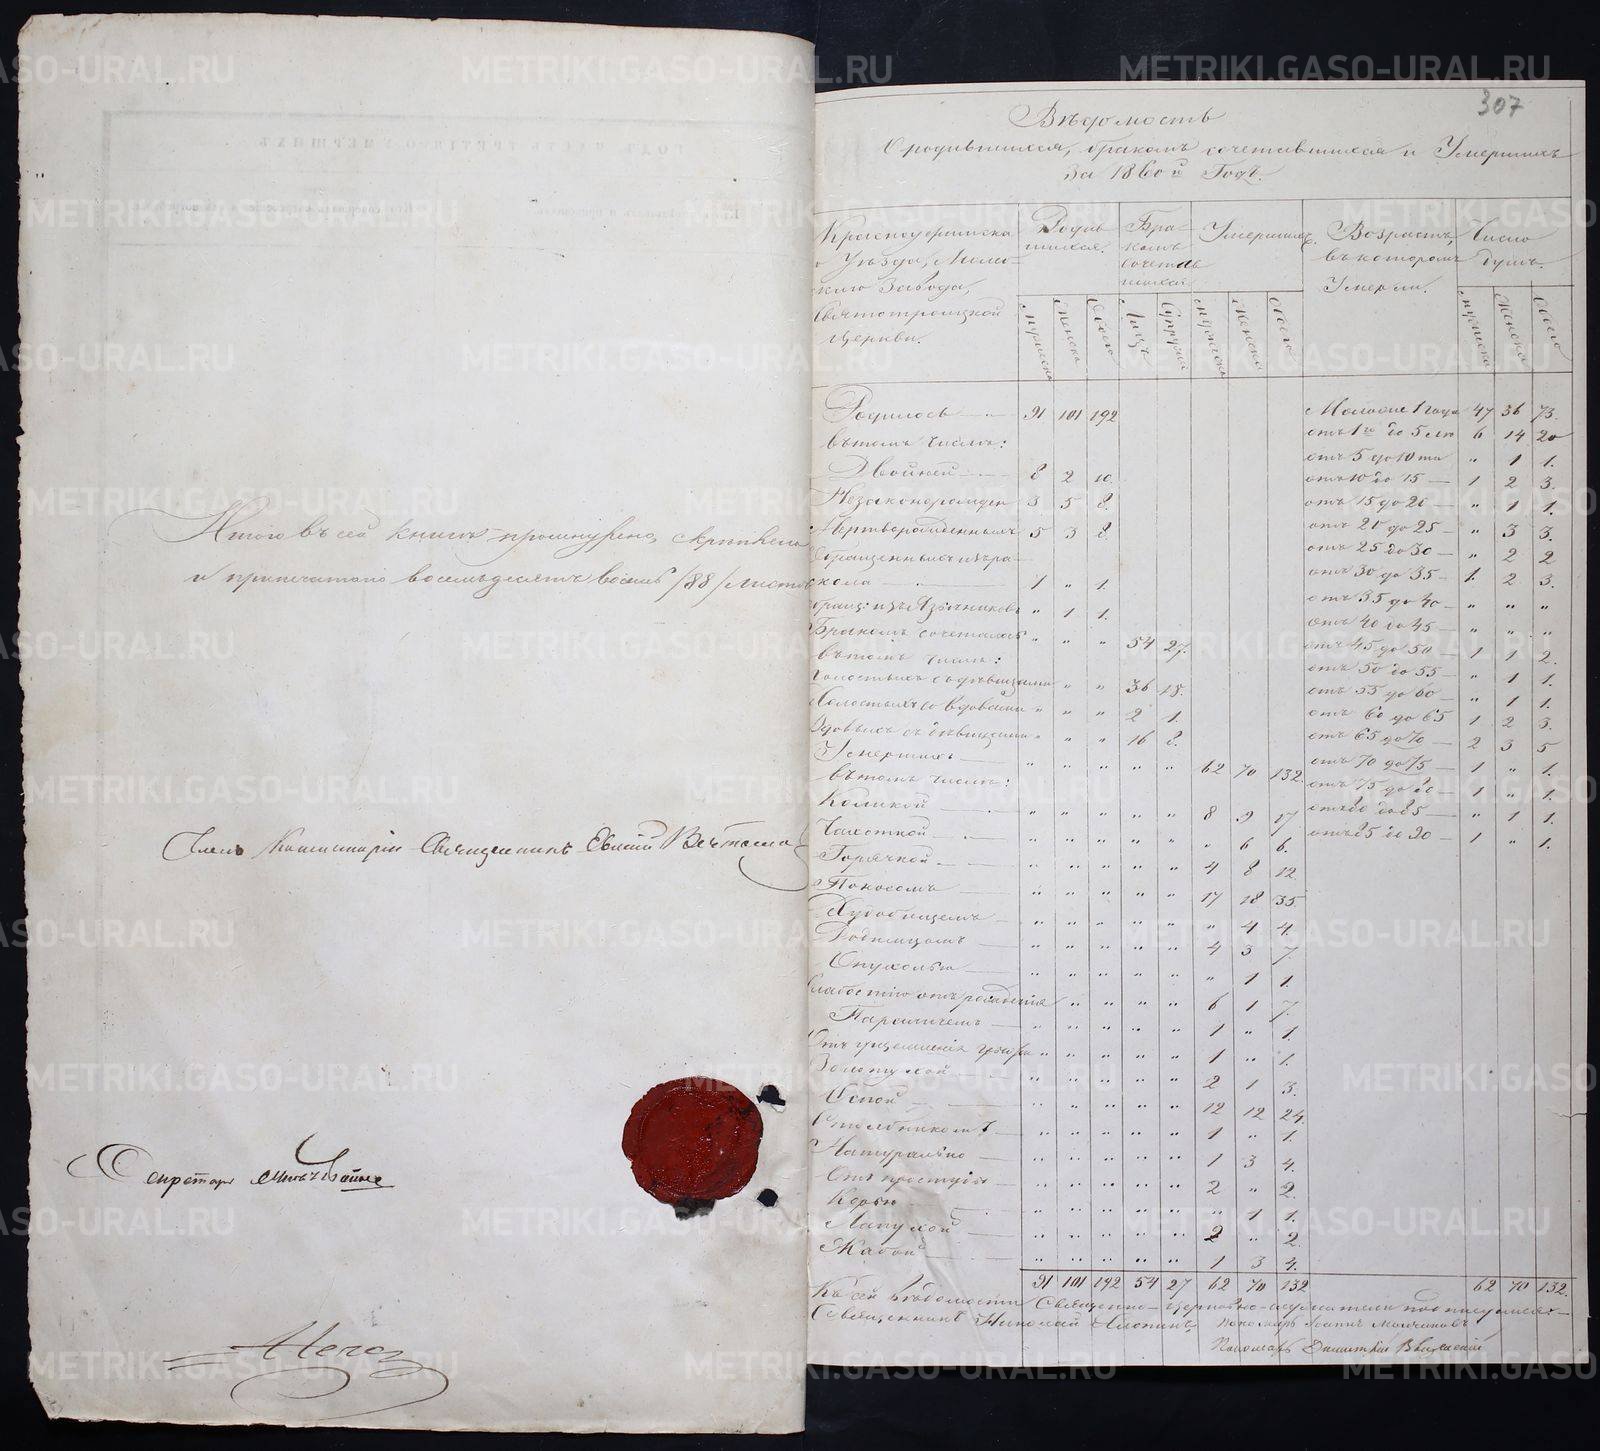 Итого въ сей книгѣ прошнурено, скрѣплено
и припечатано восемьдесятъ восемь /88/ листовъ
Членъ Консисторіи Священникъ Евгеній
Секретарь
307
Вѣдомость
О родившихся, бракомъ сочетавшихся и Умершихъ
за 1860й Годъ.
Красноуфимска
го Уѣзда,
скаго Завода,
Святотроицкой
Церкви.
Родив
шихся.
Бра-
комъ
сочетав
шихся
Умершихъ.
Возрастъ,
въ которомъ
Умерли.
Число
душъ.
Мужеска Женска Обоего Лицъ Супруж Мужеска Женска Обоего Мужеска Женска Обоего
Родилось — 91 101 192
въ томъ числѣ:
Двойней — 8 2 10.
Незаконорожден 3 5 8.
Мертворожденныхъ 5 3 8.
Обращенныхъ изъ ра-
скола — 1 " 1.
обращ: изъ Язычниковъ " 1 1.
Бракомъ сочеталось " " " 54 27.
въ томъ числѣ:
Холостыхъ съ дѣвицами " " 36 18.
Холостыхъ со вдовами " " " 2 1.
Вдовыхъ съ дѣвицами " " " 16 8.
Умершихъ — " " " " " 62 70 132.
въ томъ числѣ:
Коликой — " " " " " 8 9 17
Чахоткой — " " " " " " 6 6.
Горячкой — " " " " " 4 8 12.
Поносомъ — " " " " " 17 18 35
" " " " " " 4 4.
Родимцомъ — " " " " " 4 3 7.
Опухолью — " " " " " " 1 1.
Слабостію отъ рожденія " " " " 6 1 7.
Параличемъ — " " " " " 1 " 1.
Отъ ущемленія грыжи " " " " " 1 " 1.
Золотухой — " " " " " 2 1 3.
Оспой — " " " " " 12 12 24.
" " " " " 1 " 1.
Натурально — " " " " " 1 3 4.
Отъ простуды — " " " " " 2 " 2.
Корью — " " " " " " 1 1.
" " " " " 2 " 2.
Жабой — " " " " " 1 3 4.
91 101 192 54 27 62 70 132
Моложе 1 года 47 36 73.
отъ 1го до 5 лѣт 6 14 20
отъ 5 до 10 ти " 1 1.
отъ 10 до 15 — 1 2 3.
отъ 15 до 20 — " 1 1.
отъ 20 до 25 — " 3 3.
отъ 25 до 30 — " 2 2
отъ 30 до 35 — 1. 2 3.
отъ 35 до 40 — " " "
отъ 40 до 45 — " " "
отъ 45 до 50 — 1 1 2.
отъ 50 до 55 — " 1 1.
отъ 55 до 60 — " 1 1.
отъ 60 до 65 1 2 3.
отъ 65 до 70 — 2 3 5
отъ 70 до 75 — 1 " 1.
отъ 75 до 80 — 1 " 1.
отъ 80 до 85 — " 1 1.
отъ 85 до 90 — 1 " 1.
62 70 132.
Къ сей вѣдомости Священно-церковно-служители подписались
Священникъ Николай пономарь Іоаннъ Молчановъ
Пономарь Димитрій Введенскій
METRIKI.GASO-URAL.RU